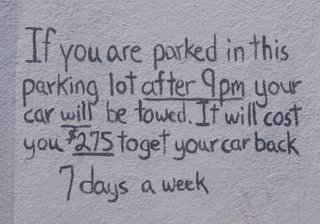 If you are parked in this
parking lot after 9pm your
car will be towed. It will cost
you $275 to get your car back
7 days a week